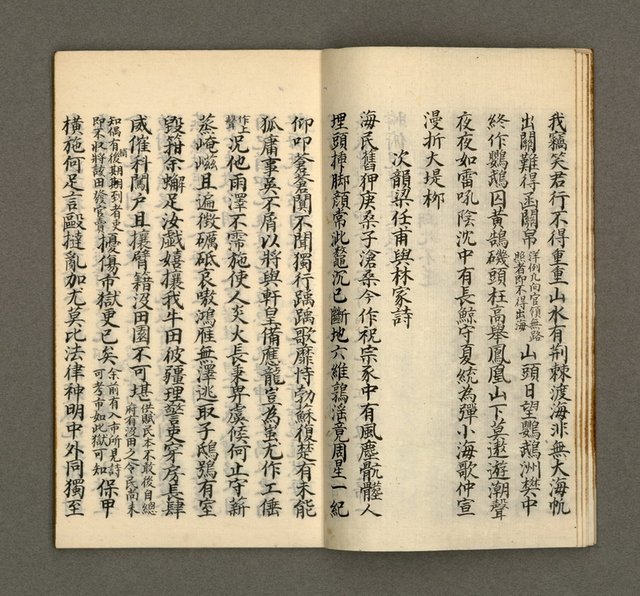 我竊笑君行不得重重山水有荆棘渡海非無大海帆
出關難得函關帛洋例凡向官領無路照者即不得出海山頭日望鸚鵡洲樊中
終作鸚鵡囚黃鵠磯頭枉高舉鳳凰山下莫遨遊潮聲
夜夜如雷吼陰沈中有長鯨守夏統為彈小海歌仲宣
漫折大堤柳
次韻梁任甫與林家詩
海民舊狎庚桑子滄桑今作祝宗豕中有風塵骯髒人
埋頭揀腳顏常泚鼇沉已斷地六維鶉謠竟周星一紀
仰叩蒼蒼閽不聞獨行踽踽歌靡恃勃穌復楚有未能
狐庸事吳不屑以將與軒皇備應龍豈為蚩尤作工倕
作上聲況他雨澤不需施使人炎火長秉畀虛候何止守新
蒸崦嵫且遍徵礪砥哀嗷鴻雁無澤逃取子鴟鴞有室
毀拑余蠏足汝戲嬉攘我牛田彼疆理詧吏穿房長肆
威催科闖戶且攘臂籍沒田園不可堪供賦民本不敢後自總府有沒田之令民尚未
知偶有後期期到者更即不收將該田發官賣擾傷市獄更已矣余前有入市所見詩可考市如此獄可知保甲
橫施何足言毆撻亂加尤莫比法律神明中外同獨至